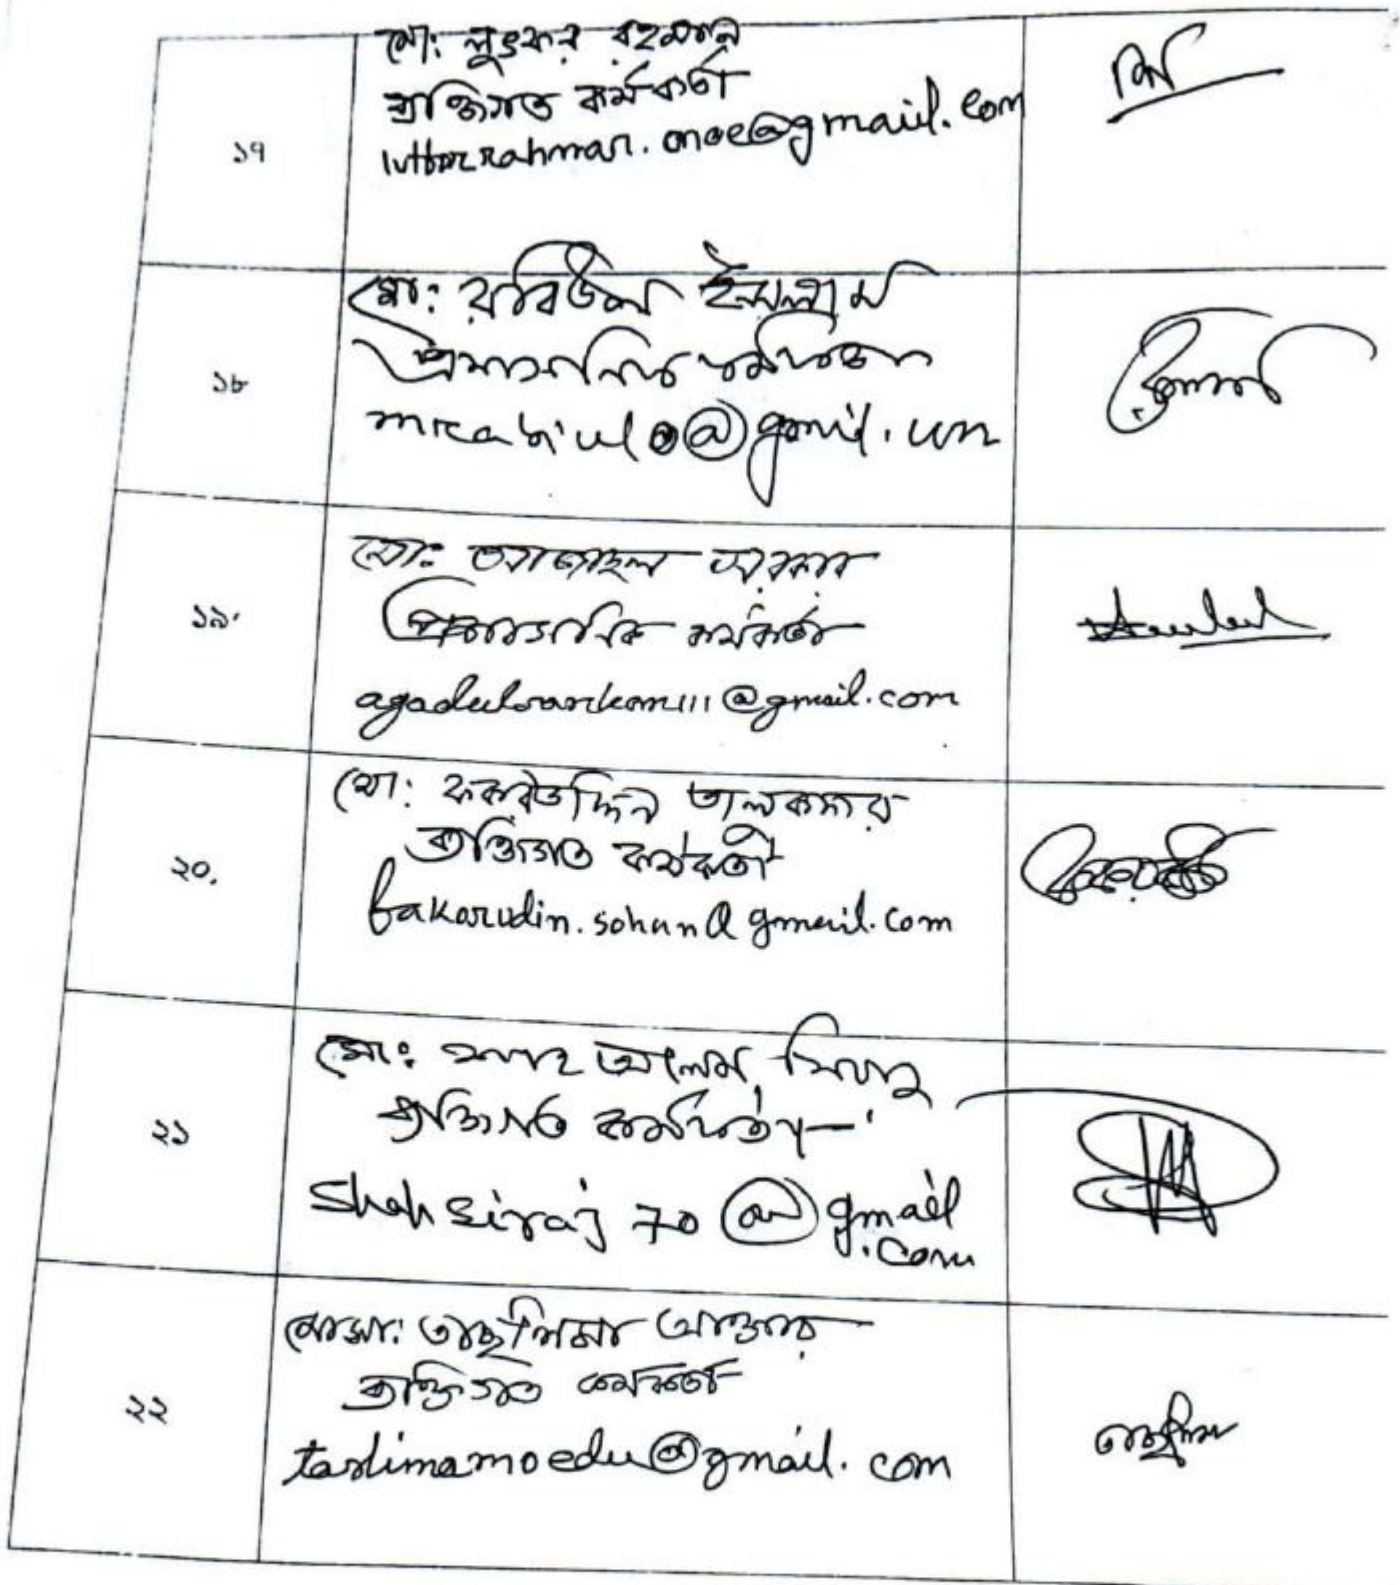 ১৭
মো: লুৎফর রহমান
ব্যক্তিগত কর্মকর্তা
lutforrahman.moe@gmail.com
১৮
মো: রবিউল ইসলাম
প্রশাসনিক কর্মকর্তা
mrabiul0@gmail.com
১৯.
মো: আজাদুল সরকার
প্রশাসনিক কর্মকর্তা
agadulsarkar111@gmail.com
২০.
মো: ফকরউদ্দিন তালুকদার
ব্যক্তিগত কর্মকর্তা
fakorudin.sohan@gmail.com
২১
মো: শাহ আলম সিরাজ
ব্যক্তিগত কর্মকর্তা
Shahsiraj70@gmail
.com
২২
মোসা: তাছলিমা আক্তার
ব্যক্তিগত কর্মকর্তা
taslimamoedu@gmail.com
তাছলিমা